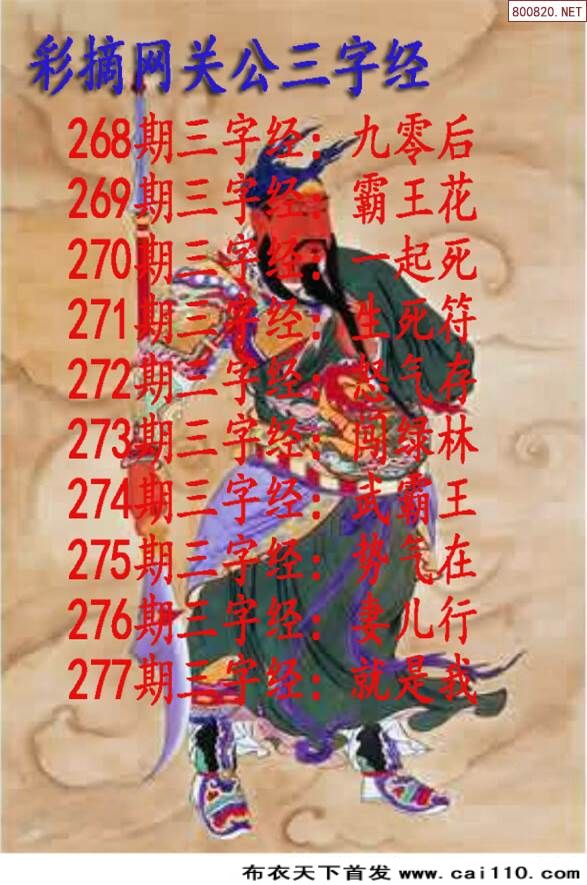 800820.NET
彩摘网关公三字经
268期三字经：九零后
269期三字经：霸王花
270期三字经：一起死
271期三字经：生死符
272期三字经：怒气存
273期三字经：闯绿林
274期三字经：武霸王
275期三字经：势气在
276期三字经：妻儿行
277期三字经：就是我
布衣天下首发 www.cai110.com